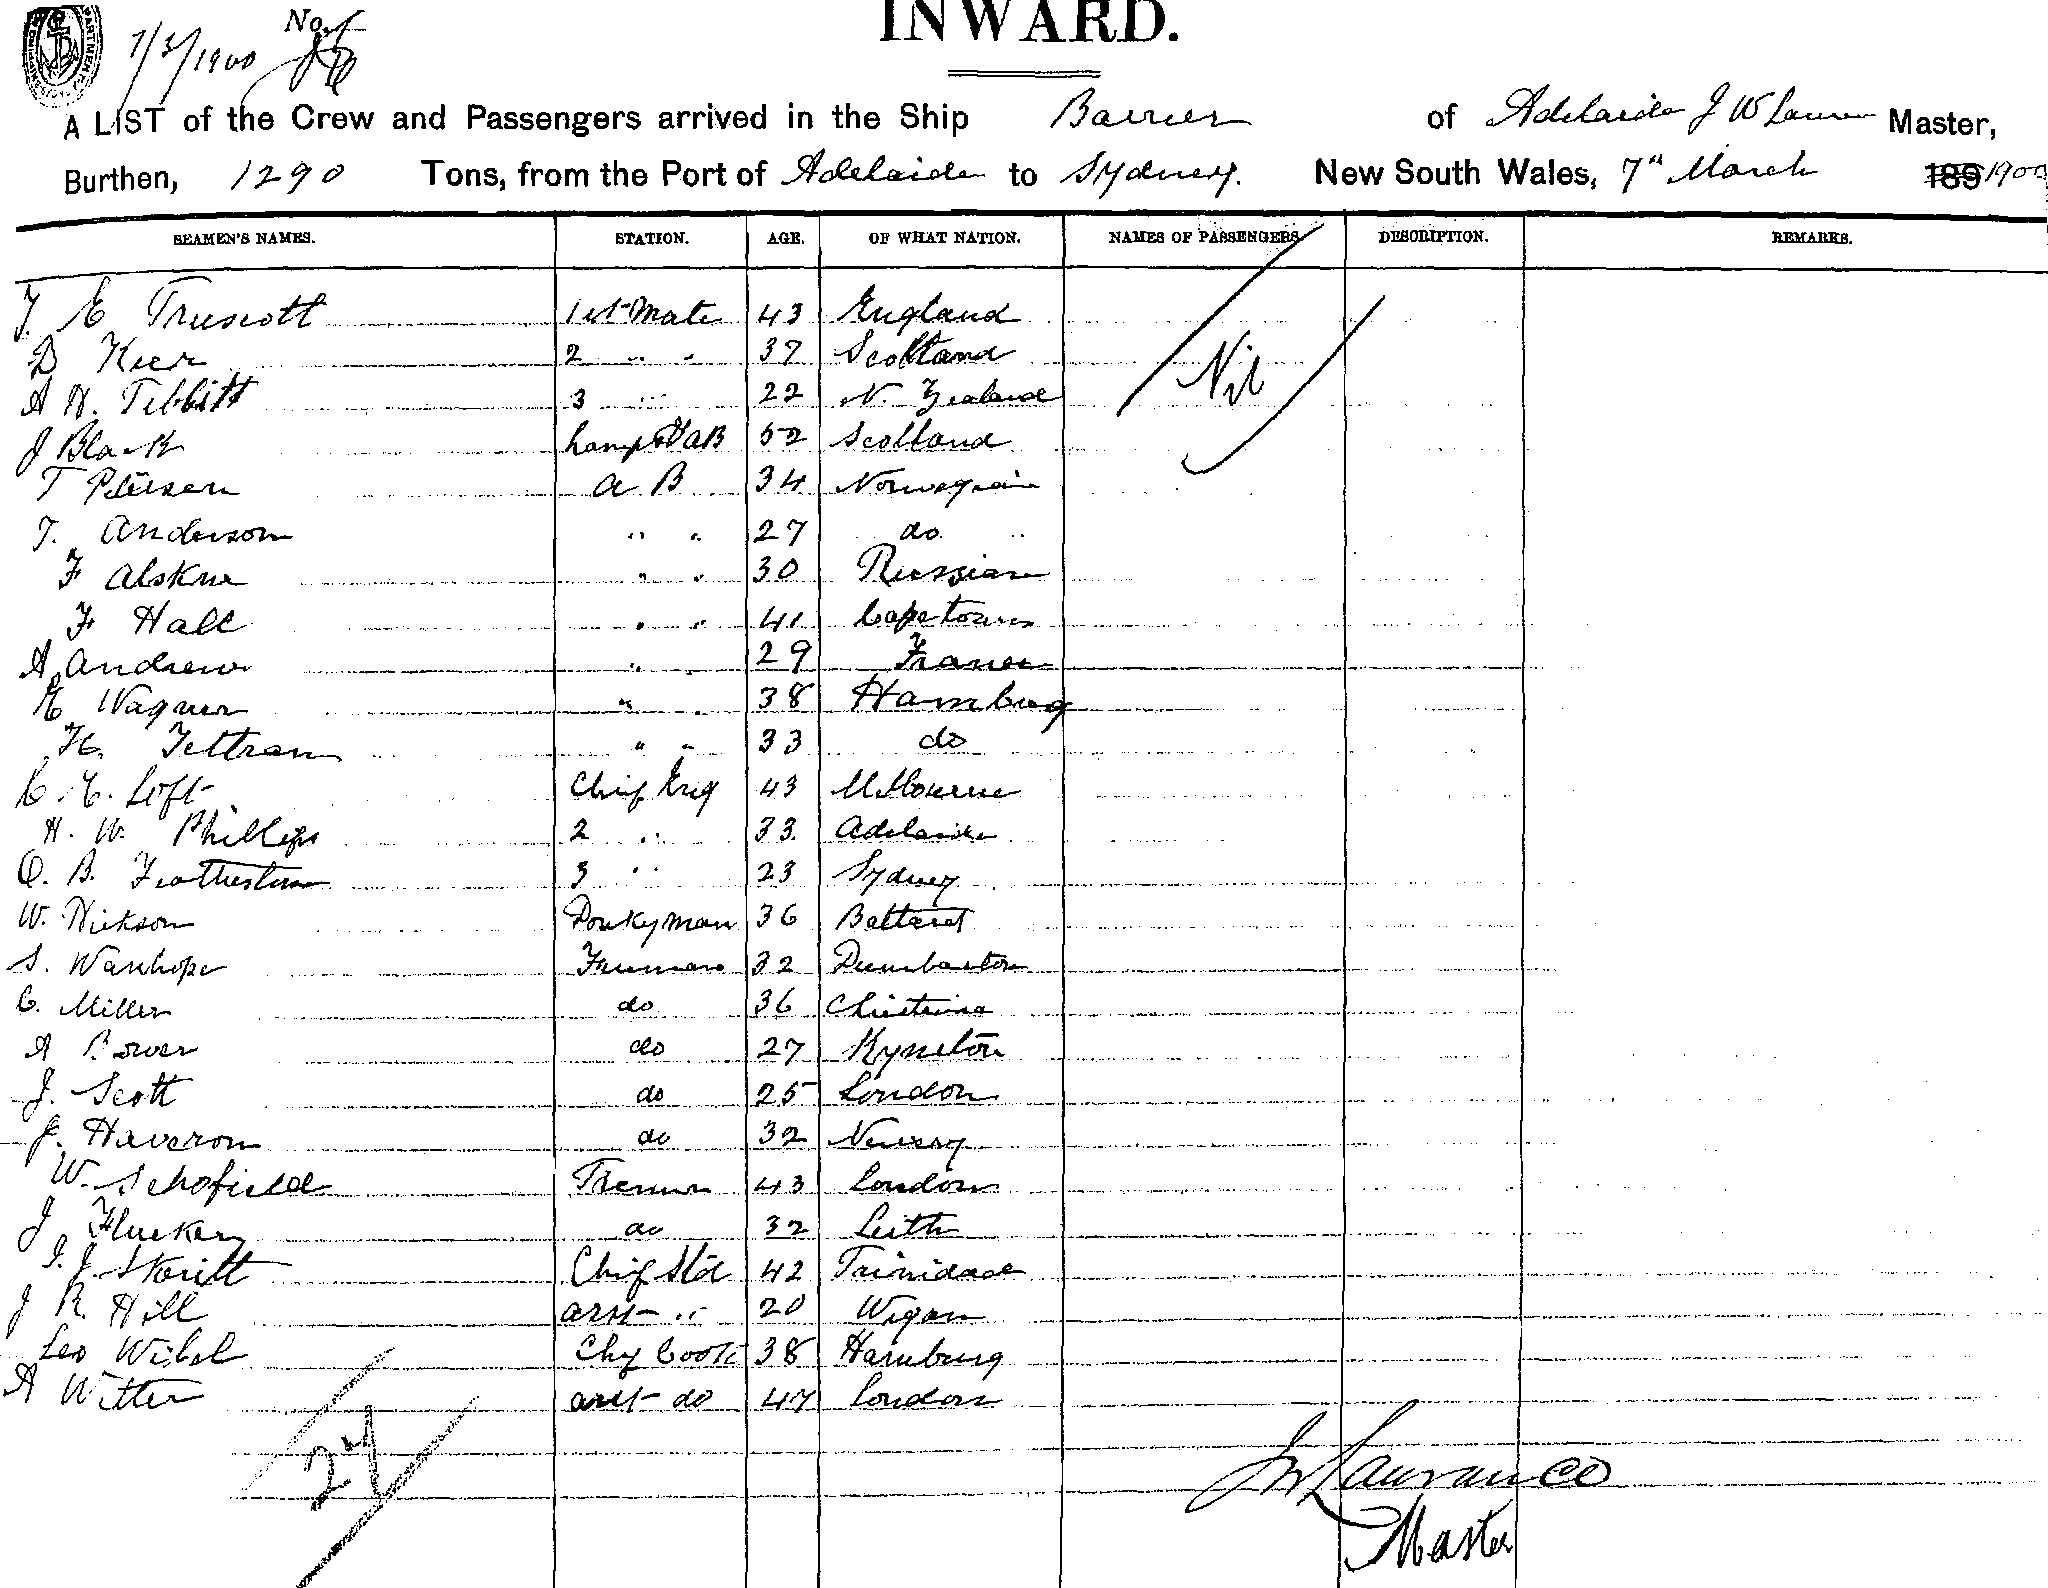 7/3/1900 No.
INWARD.
A LIST of the Crew and Passengers arrived in the Ship Barrier of Adelaide J W Laurence Master,
Burthen, 1290 Tons, from the Port of Adelaide to Sydney. New South Wales, 7th March 189 1900
SEAMEN'S NAMES. STATION. AGE. OF WHAT NATION. NAMES OF PASSENGERS. DESCRIPTION. REMARKS.
T. E Truscott 1st Mate 43 England
D Keer 2 " " 37 Scotland Nil
A H. Tibbitt 3 " 22 N. Zealand
J Black Lamps & AB 52 Scotland
T Petersen A B 34 Norwegian
T. Anderson " " 27 do
F Alskne " " 30 Russian
F Hall " " 41 Capetown
A. Andrew " 29 France
E Wagner " 38 Hamburg
H. Teltram " " 33 do
C. E. Loft Chief Eng 43 Melbourne
H. W. Phillips 2 " 33 Adelaide
O. B. Featherstone 3 " 23 Sydney
W. Hickson Donkyman 36 Ballarat
S. Wanhope Fireman 32 Dumbarton
C. Miller do 36 Christiania
A Bower do 27 Kyneton
J. Scott do 25 London
J. Haveron do 32 Newry
W. Schofield Trimmer 43 London
J Flucker do 32 Leith
J. Storitt Chief Std 42 Trinidad
J R. Hill asst " 20 Wigan
Leo Wibel Chf Cook 38 Hamburg
A Witter asst do 47 London
27
JW Laurance
Master